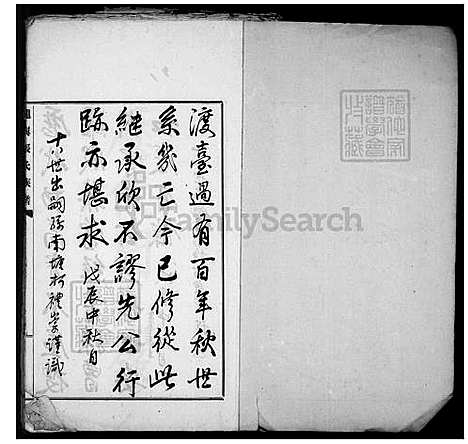 渡臺過有百年秋世
系幾亡今已修從此
繼承欣不謬先公行
跡亦堪求 戊辰中秋日
十八世出嗣孫南塘柯禮崇謹識
FamilySearch